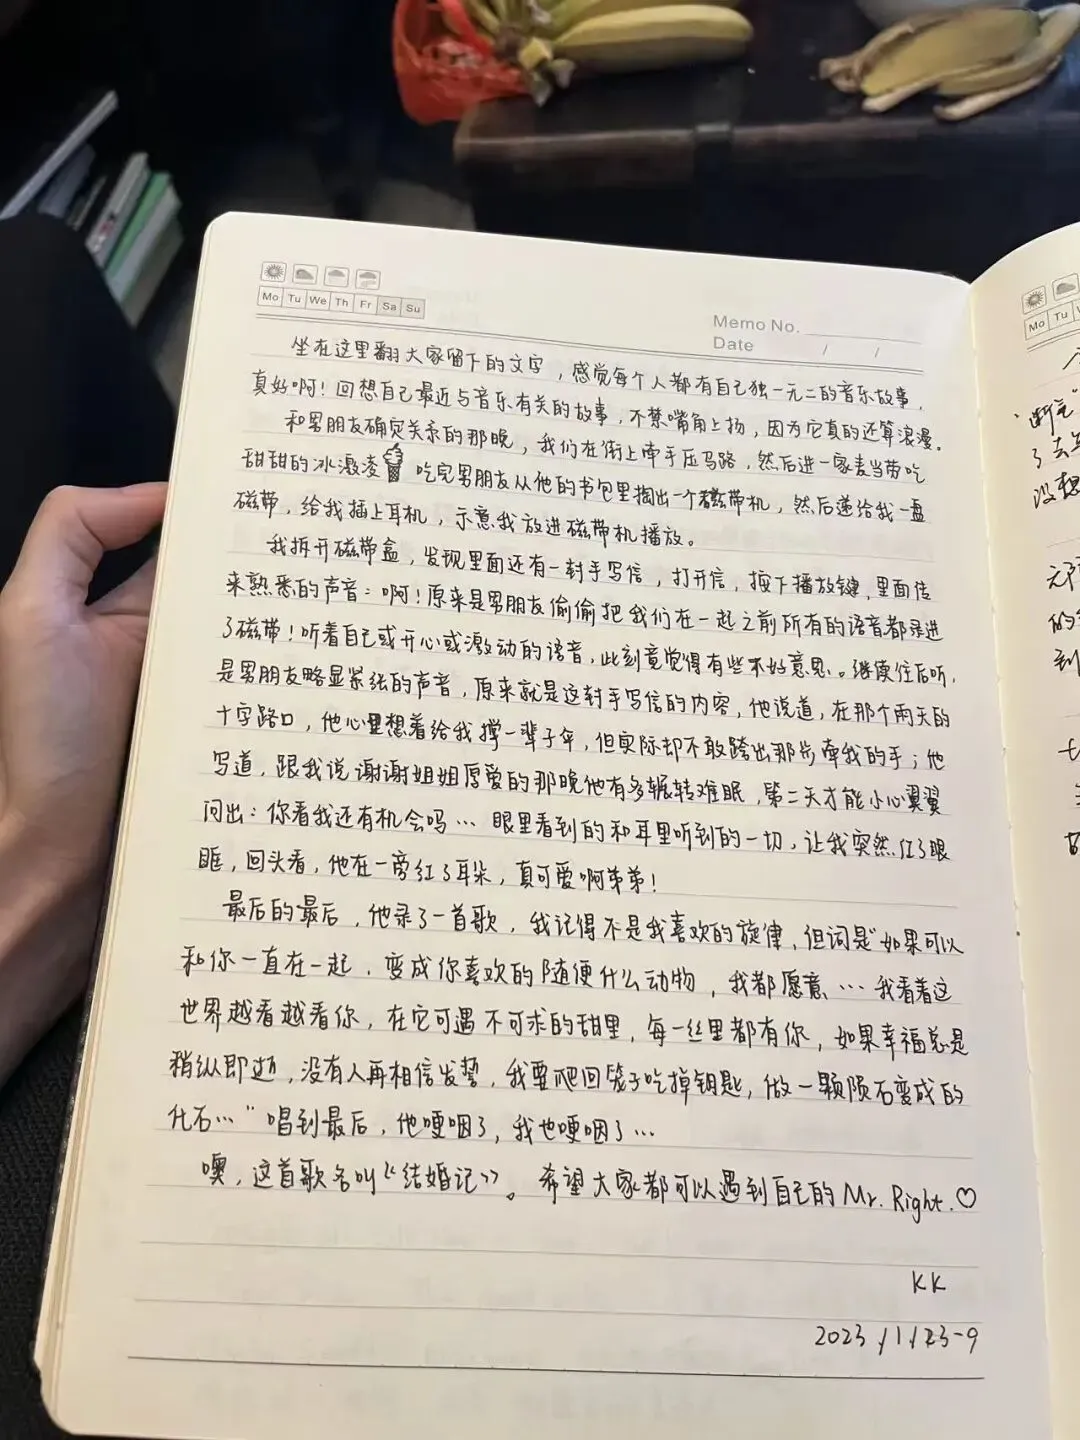 Mo Tu We Th Fr Sa Su
Memo No.
Date / /
坐在这里翻大家留下的文字，感觉每个人都有自己独一无二的音乐故事，
真好啊！回想自己最近与音乐有关的故事，不禁嘴角上扬，因为它真的还算浪漫。
和男朋友确定关系的那晚，我们在街上牵手压马路，然后进一家麦当劳吃
甜甜的冰激凌 吃完男朋友从他的书包里掏出一个磁带机，然后递给我一盘
磁带，给我插上耳机，示意我放进磁带机播放。
我拆开磁带盒，发现里面还有一封手写信，打开信，按下播放键，里面传
来熟悉的声音：啊！原来是男朋友偷偷把我们在一起之前所有的语音都录进
了磁带！听着自己或开心或激动的语音，此刻竟觉得有些不好意思。继续往后听，
是男朋友略显紧张的声音，原来就是这封手写信的内容，他说道，在那个雨天的
十字路口，他心里想着给我撑一辈子伞，但实际却不敢跨出那步牵我的手；他
写道，跟我说谢谢姐姐厚爱的那晚他有多辗转难眠，第二天才能小心翼翼
问出：你看我还有机会吗… 眼里看到的和耳里听到的一切，让我突然红了眼
眶，回头看，他在一旁红了耳朵，真可爱啊弟弟！
最后的最后，他录了一首歌，我记得不是我喜欢的旋律，但词是“如果可以
和你一直在一起，变成你喜欢的随便什么动物，我都愿意…我看着这
世界越看越看你，在它可遇不可求的甜里，每一丝里都有你，如果幸福总是
稍纵即逝，没有人再相信发誓，我要爬回笼子吃掉钥匙，做一颗陨石变成的
化石…”唱到最后，他哽咽了，我也哽咽了…
噢，这首歌名叫《结婚记》。希望大家都可以遇到自己的Mr. Right.♡
KK
2023/1/23-9
Mo Tu
了去
没想
到